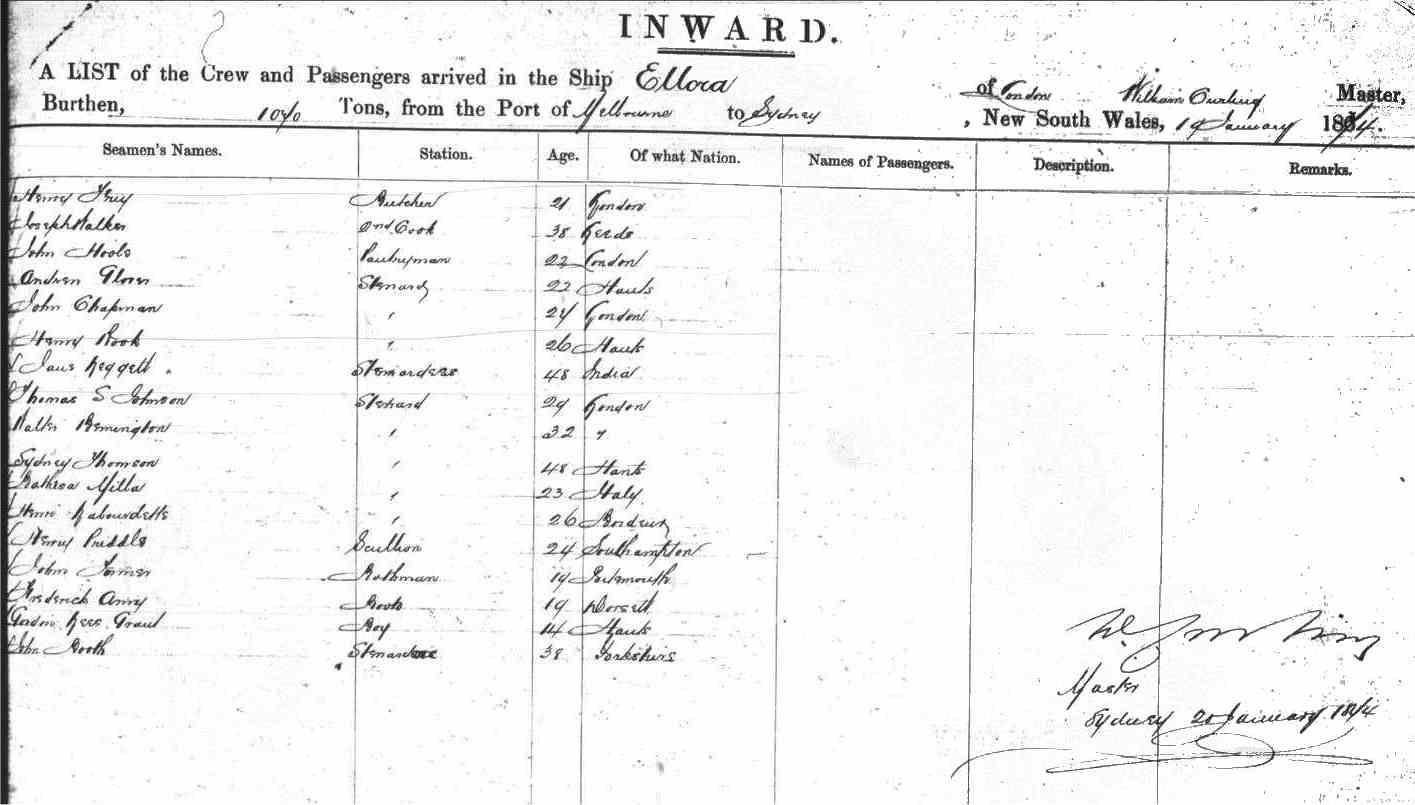 INWARD.
A LIST of the Crew and Passengers arrived in the Ship Ellora of London William Curling Master,
Burthen, 1040 Tons, from the Port of Melbourne to Sydney, New South Wales, 19 January 1874.
Seamen's Names. Station. Age. Of what Nation. Names of Passengers. Description. Remarks.
Henry Butcher 21 London
Joseph Walker 2nd Cook 38 Leeds
John Pantryman 22 London
Andrew Glover Steward 22 Hants
John Chapman " 24 London
Henry Rook " 26 Hants
Jane Leggett Stewardess 48 India
Thomas S Johnson Steward 29 London
Walter Remington " 32 "
Sydney Thomson " 48 Hants
Milla " 23 Italy
Henri Labourdette " 26 Bordeux
Henry Priddle Scullion 24 Southampton
John Bathman 19 Portsmouth
Frederick Boots 19 Dorsett
Gordon Rees Grant Boy 14 Hants
John Booth Steward 38 Yorkshire
Master
Sydney 20 January 1874